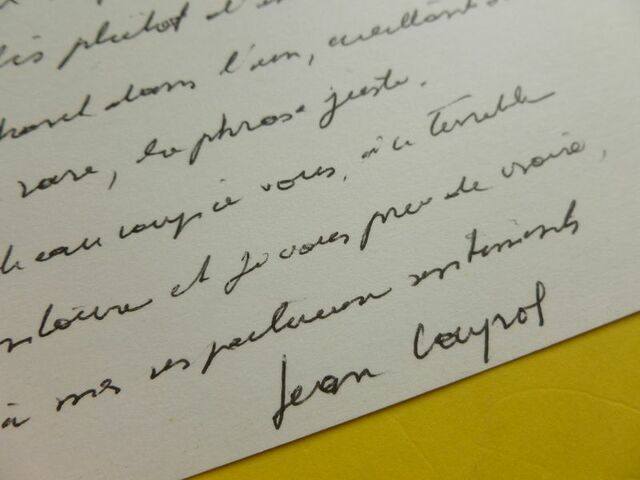 plutôt d'
dans l'un, cueillant
rare, la phrase juste.
beaucoup à vous, à ce terrible
et je vous prie de croire,
à mes respectueux sentiments
Jean Cayrol